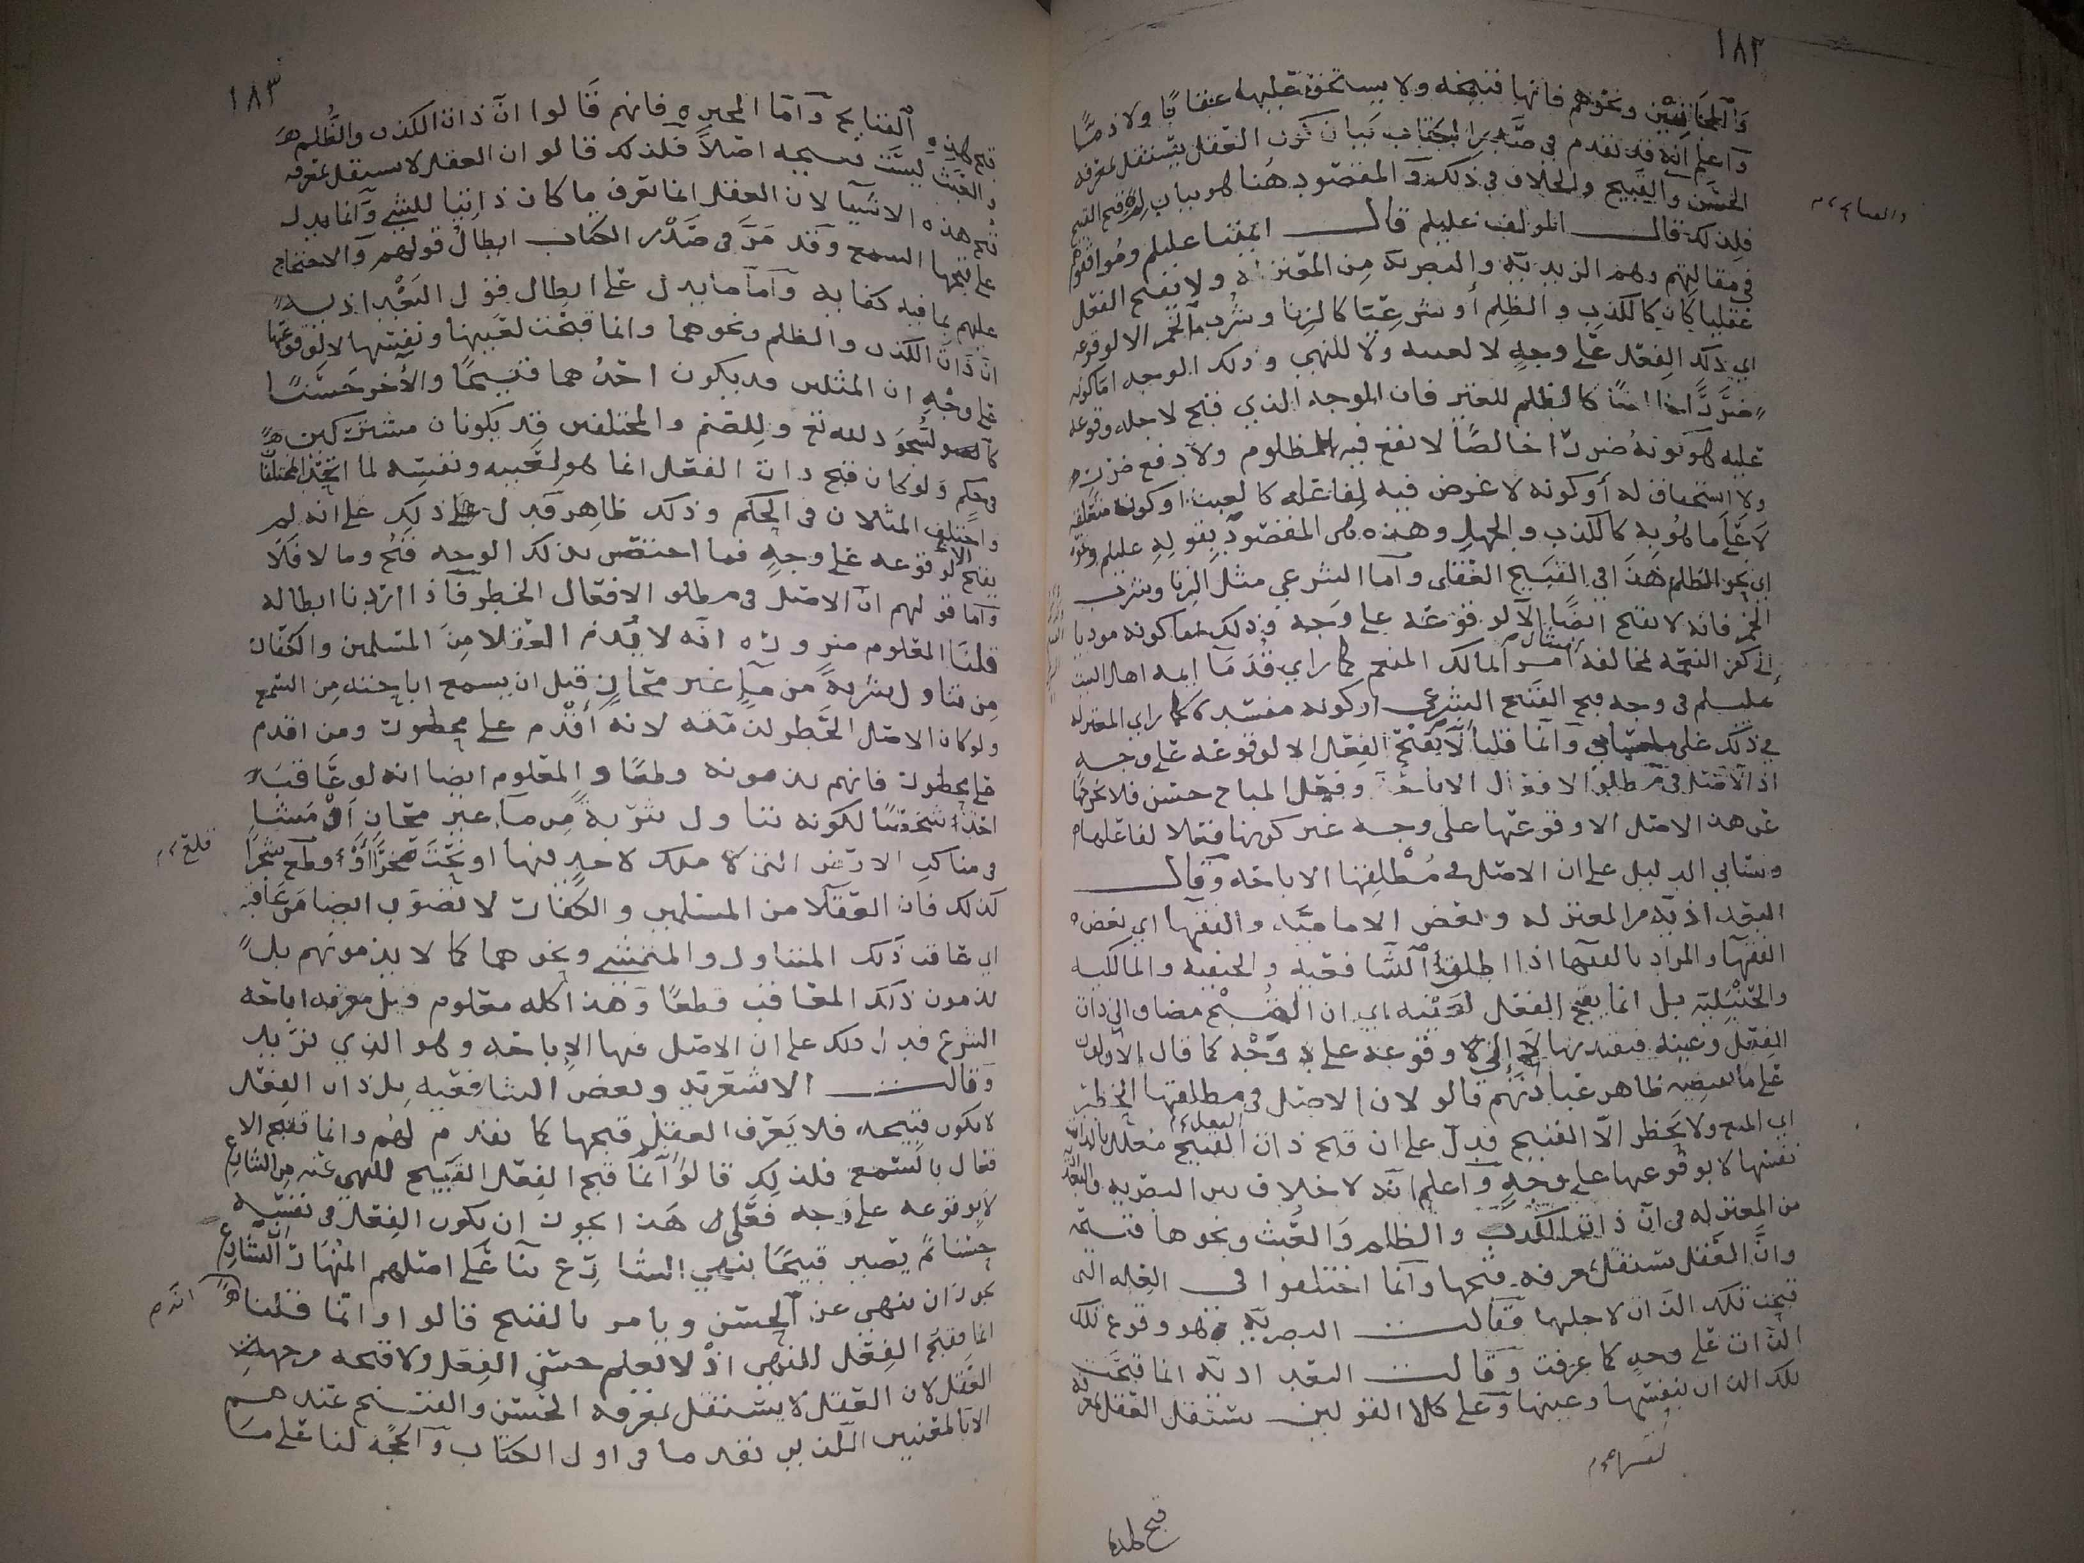 ١٨٢
والمجانين ونحوهم فانها قبيحه ولا يستحق عليه عقابا ولا ذما
واعلم انه قد تقدم في صدر الكتاب بيان كون العقل يستقل بمعرفه
الحسن والقبيح والخلاف في ذلك والمقصود هنا هو بيان قبح القبيح
فلذلك قال المولف عليلم قال ايمتنا عليلم وموافقوهم
في مقالتهم وهم الزيديه والبصريه من المعتزله ولا يقبح الفعل
عقليا كان كالكذب والظلم أو شرعيا كالزنا وشرب الخمر الا لوقوعه
اي ذلك الفعل على وجه لا لعينه ولا للنهي وذلك الوجه اما كونه
ضررا كالظلم للغير فان الوجه الذي قبح لاجله وقوعه
عليه هو كونه ضررا خالصا لا نفع فيه للمظلوم ولا دفع ضرر
ولا استحقاق له أو كونه لا غرض فيه لفاعله كالعبث او كونه متعلقه
لا على ما هو به كالكذب والجهل وهذه هي المقصود بقوله عليلم
اي نحو الظلم هذا في القبيح العقلى واما الشرعي مثل الزنا وشرب
الخمر فانه لا يقبح ايضا الا لوقوعه على وجه وذلك اما كونه موديا
إلى كفر النعمه لمخالفه امتثال أمر المالك المنعم كما راي قدماء ايمه اهل البيت
عليلم في وجه قبح القبيح الشرعي او كونه مفسده كما راي المعتزله
في ذلك على ماسياتي وانما قلنا لا يقبح الفعل الا لوقوعه على وجه
اذ الاصل في مطلق الافعال الاباحه وفعل المباح حسن فلا يخرجها
عن هذا الاصل الا وقوعها على وجه غير كونها فعلا لفاعلها
وسياتي الدليل على ان الاصل في مطلقها الاباحه وقال
البغداذيه من المعتزله وبعض الاماميه والفقها اي بعض
الفقها والمراد بالفقها اذا اطلق الشافعيه والحنفيه والمالكيه
والحنبليه بل انما يقبح الفعل لعينه اي ان القبح مضاف الى ذات
الفعل وعينه لا إلى وقوعه على وجه كما قال الاولون
على ما يقتضيه ظاهر عبارتهم قالوا لان الاصل في مطلقها الحظر
اي المنع ولا يحظر الا القبيح فدل على ان قبح ذات الفعل القبيح معلل بالذات
نفسها لا بوقوعها على وجه واعلم انه لا خلاف بين البصريه والبغداذيه
من المعتزله في ان ذات الكذب والظلم والعبث ونحوها قبيحه
وان العقل يستقل بمعرفه قبحها وانما اختلفوا في العله التي
قبحت تلك الذات لاجلها فقالت البصريه هو وقوع تلك
الذات على وجه كما عرفت وقالت البغداذيه انما قبحت
تلك الذات لنفسها وعينها وعلى كلا القولين يستقل العقل بمعرفه
قبح هذه
١٨٣
قبح هذه القبايح واما المجبره فانهم قالوا ان ذات الكذب والظلم
والعبث ليست قبيحه اصلا فلذلك قالوا ان العقل لا يستقل بمعرفه
قبح هذه الاشيا لان العقل انما يعرف ما كان ذاتيا للشي وانما يدل
على قبحها السمع وقد مر في صدر الكتاب ابطال قولهم والاحتجاج
عليهم بما فيه كفايه واما ما يدل على ابطال قول البغداذيه
ان ذات الكذب والظلم ونحوهما وانما قبحت لعينها ونفسها لا لوقوعها
على وجه ان المثلين قد يكون احدهما قبيحا والأخر حسنا
كالسجود لله تع وللصنم والمختلفين قد يكونان مشتركين
في حكم ولو كان قبح ذات الفعل انما هو لعينه ونفسه لما اتحد المختلفان
واختلف المثلان في الحكم وذلك ظاهر فدل ذلك على انه لم
يقبح الا لوقوعه على وجه فما اختص بذلك الوجه قبح وما لا فلا
واما قولهم ان الاصل في مطلق الافعال الحظر فاذا اردنا ابطاله
قلنا المعلوم ضروره انه لا يذم العقلا من المسلمين والكفار
من تناول شربة من مآء غير محاز قبل ان يسمع اباحته من السمع
ولو كان الاصل الحظر لذمته لانه أقدم على محظور ومن اقدم
على محظور فانهم يذمونه قطعا والمعلوم ايضا انه لو عاقب
احد شخصا لكونه تناول شربة من مآء غير محاز أو مشا
في مناكب الارض التي لا ملك لاحد فيها او نحت حجرا أو قطع شجرا
كذلك فان العقلا من المسلمين والكفار لا تصوب ايضا من عاقبه
اي عاقب ذلك المتناول والمتمشي ونحوهما كما لا يذمونهم بل
يذمون ذلك المعاقب قطعا وهذا كله معلوم قبل معرفه اباحه
الشرع فدل ذلك على ان الاصل فيها الإباحه وهو الذي نريد
وقالت الاشعريه وبعض الشافعيه بل ذات الفعل
لا يكون قبيحه فلا يعرف العقل قبحها كما تقدم لهم وانما تقبح الا
فعال بالسمع فلذلك قالوا انما قبح الفعل القبيح للنهي عنه من الشارع
لا لوقوعه على وجه فعلى هذا يجوز ان يكون الفعل في نفسه
حسنا ثم يصير قبيحا بنهي الشارع بنآ على اصلهم المنهار ان الشارع
يجوز ان ينهى عن الحسن ويامر بالقبيح قالوا وانما قلنا
انما قبح الفعل للنهى اذ لا نعلم حسن الفعل ولا قبحه من جهه
العقل لان العقل لا يستقل بمعرفه الحسن والقبيح عندهم
الا بالمعنيين اللذين تقدما في اول الكتاب والحجه لنا على مسا